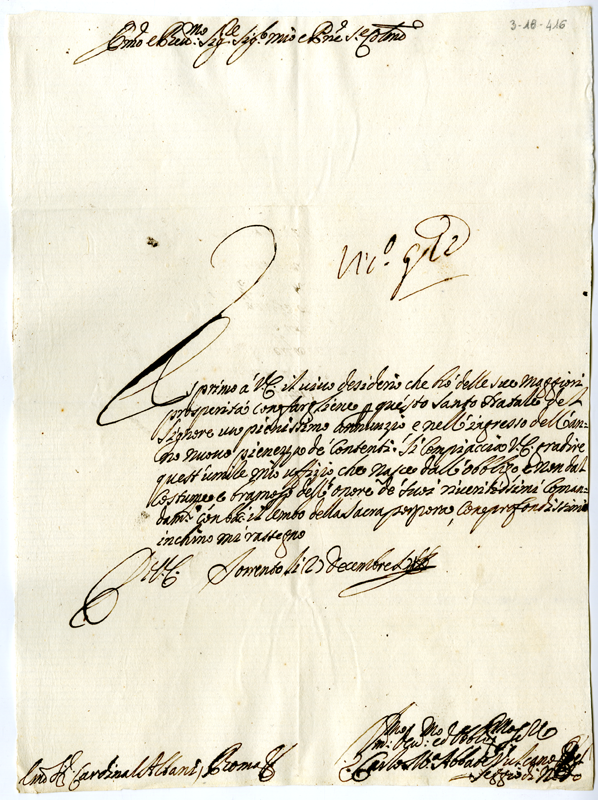 3-18-416
Em̃o e Rev:mo Sig:re Sig:r mio e Pr̃ne S.e Colmo
Esprimo á V.E. il vivo desiderio che hó delle sue maggiori
prosperitá con fargliene p questo Santo Natale del
Signore un pienissimo annunzio e nell'ingresso dell'An-
no nuovo pienezza de Contenti. Si compiaccia V.E. gradire
quest'umile mio uffizio che nasce dall'obbligo e non dal
Costume e bramoso dell'onore de suoi riveritissimi Coman-
dam:ti con bac: il lembo della Sacra porpora, con profondissimo
inchino mi rassegno
D V.E. Sorrento li 2 decembre
Carlo Abbate Vulcano
Seggio di Nido
Em̃o Sr Cardinal Albani, Roma